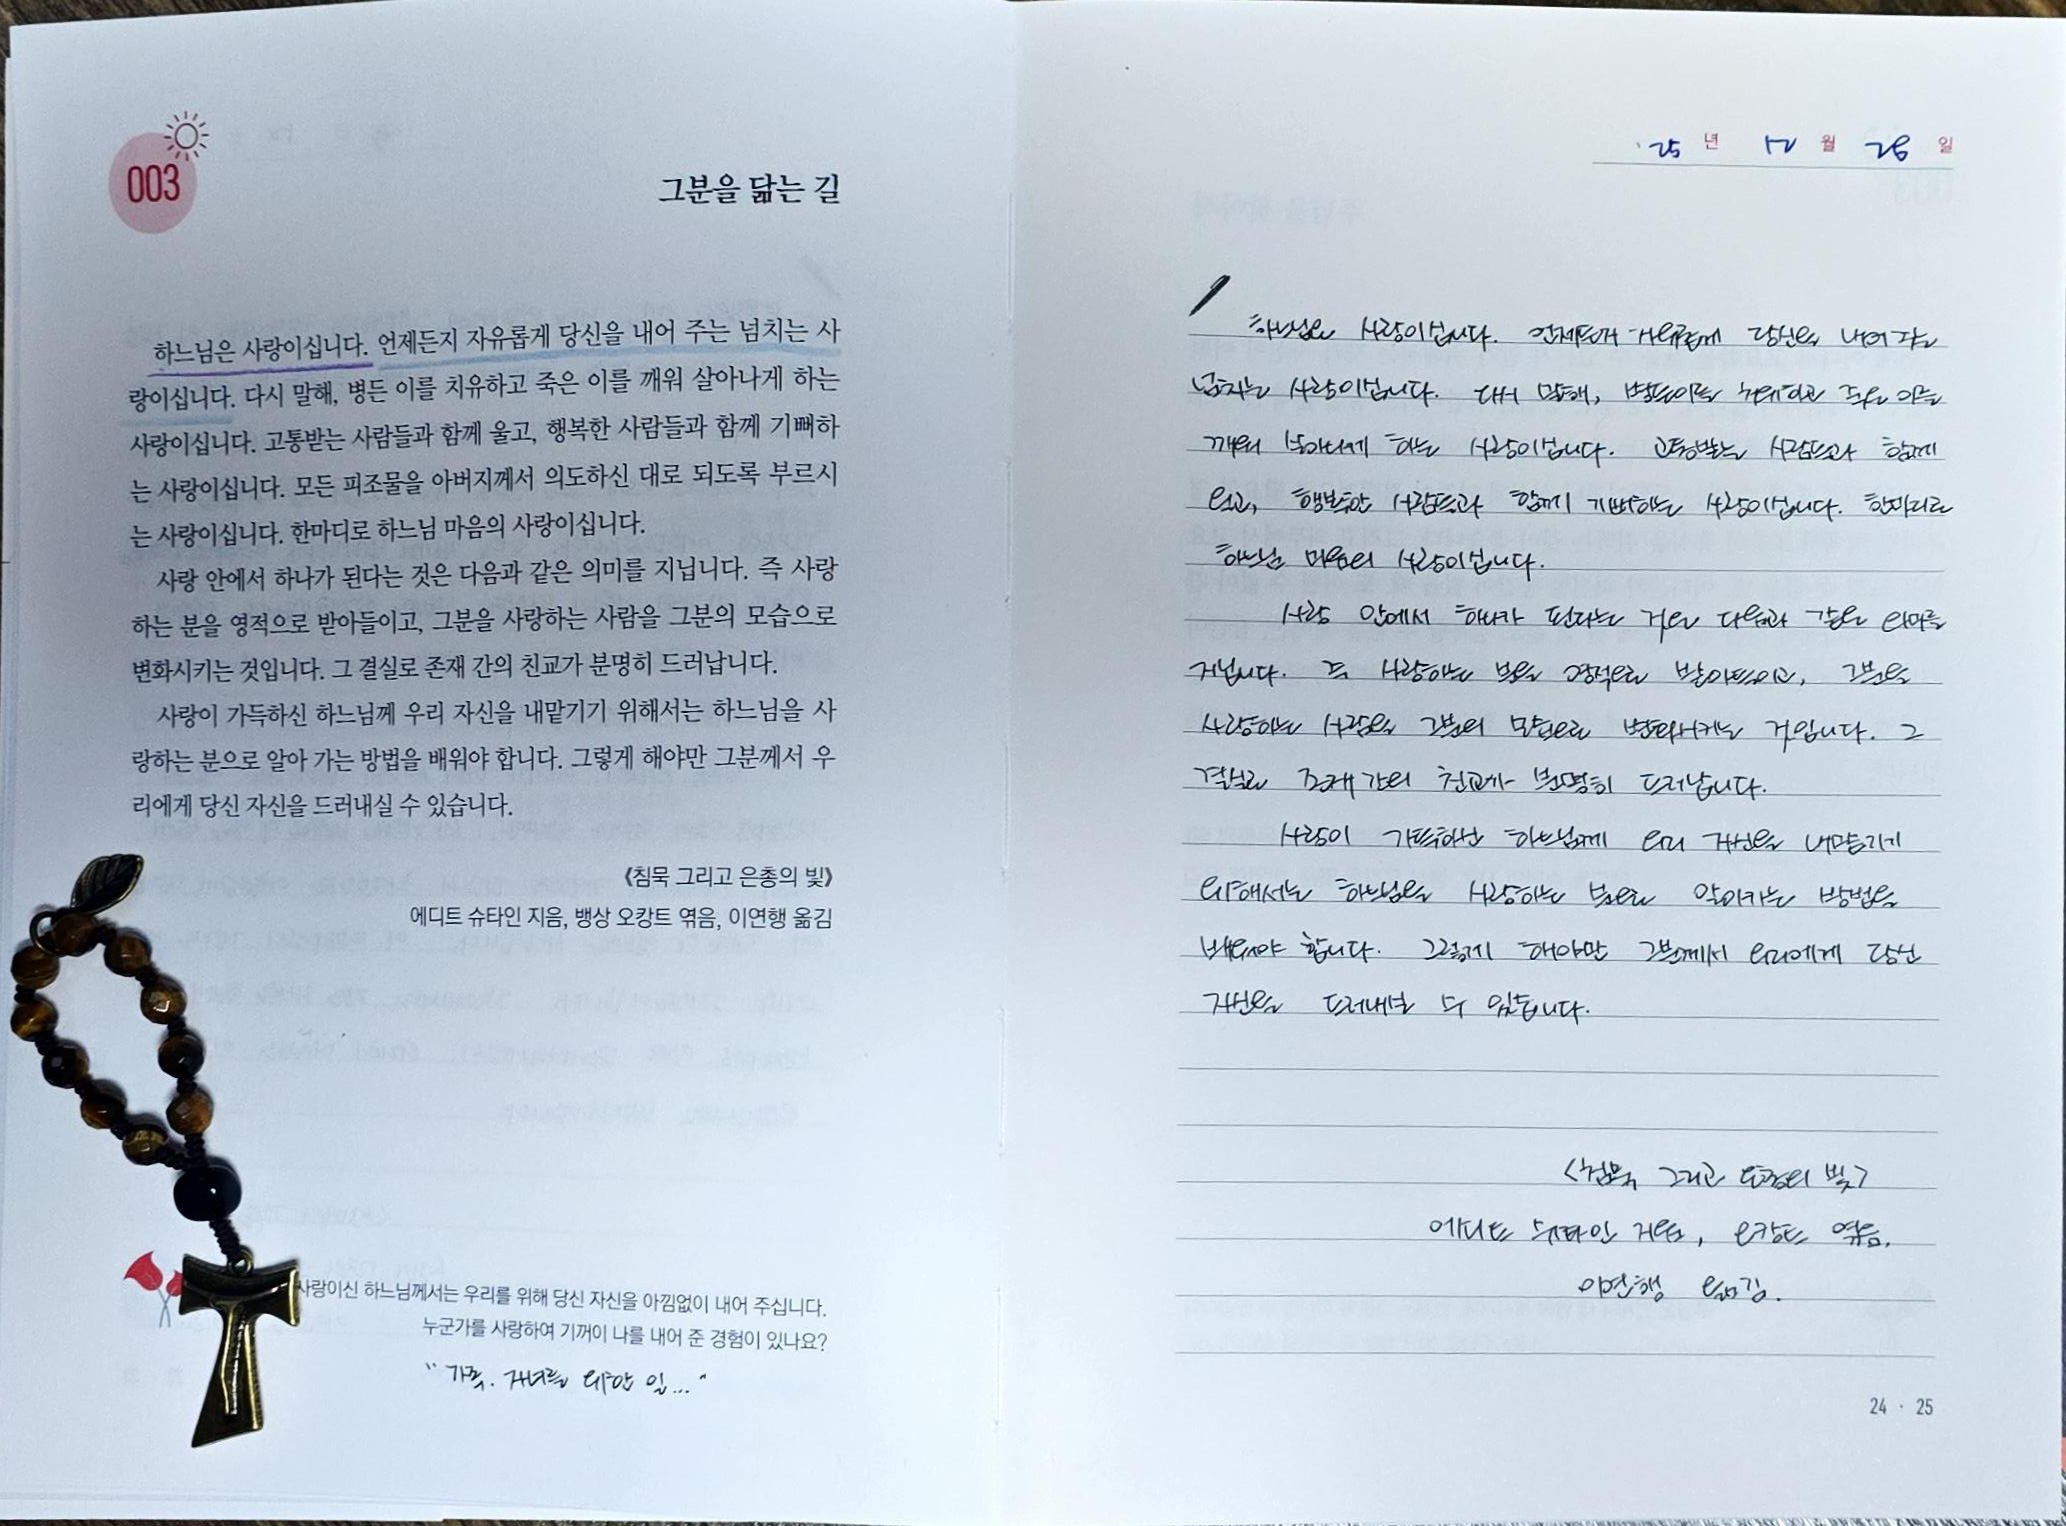 003
그분을 닮는 길
하느님은 사랑이십니다. 언제든지 자유롭게 당신을 내어 주는 넘치는 사
랑이십니다. 다시 말해, 병든 이를 치유하고 죽은 이를 깨워 살아나게 하는
사랑이십니다. 고통받는 사람들과 함께 울고, 행복한 사람들과 함께 기뻐하
는 사랑이십니다. 모든 피조물을 아버지께서 의도하신 대로 되도록 부르시
는 사랑이십니다. 한마디로 하느님 마음의 사랑이십니다.
사랑 안에서 하나가 된다는 것은 다음과 같은 의미를 지닙니다. 즉 사랑
하는 분을 영적으로 받아들이고, 그분을 사랑하는 사람을 그분의 모습으로
변화시키는 것입니다. 그 결실로 존재 간의 친교가 분명히 드러납니다.
사랑이 가득하신 하느님께 우리 자신을 내맡기기 위해서는 하느님을 사
랑하는 분으로 알아 가는 방법을 배워야 합니다. 그렇게 해야만 그분께서 우
리에게 당신 자신을 드러내실 수 있습니다.
《침묵 그리고 은총의 빛》
에디트 슈타인 지음, 뱅상 오캉트 엮음, 이연행 옮김
사랑이신 하느님께서는 우리를 위해 당신 자신을 아낌없이 내어 주십니다.
누군가를 사랑하여 기꺼이 나를 내어 준 경험이 있나요?
"가족. 자녀를 위한 일..."
'25 년 12 월 28 일
하느님은 사랑이십니다. 언제든지 자유롭게 당신을 내어 주는
넘치는 사랑이십니다. 다시 말해, 병든이를 치유하고 죽은 이를
깨워 살아나게 하는 사랑이십니다. 고통받는 사람들과 함께
울고, 행복한 사람들과 함께 기뻐하는 사랑이십니다. 한마디로
하느님 마음의 사랑이십니다.
사랑 안에서 하나가 된다는 것은 다음과 같은 의미를
지닙니다. 즉 사랑하는 분을 영적으로 받아들이고, 그분을
사랑하는 사람을 그분의 모습으로 변화시키는 것입니다. 그
결실로 존재 간의 친교가 분명히 드러납니다.
사랑이 가득하신 하느님께 우리 자신을 내맡기기
위해서는 하느님을 사랑하는 분으로 알아가는 방법을
배워야 합니다. 그렇게 해야만 그분께서 우리에게 당신
자신을 드러내실 수 있습니다.
<침묵 그리고 은총의 빛>
에디트 슈타인 지음, 오캉트 엮음.
이연행 옮김.
24 · 25